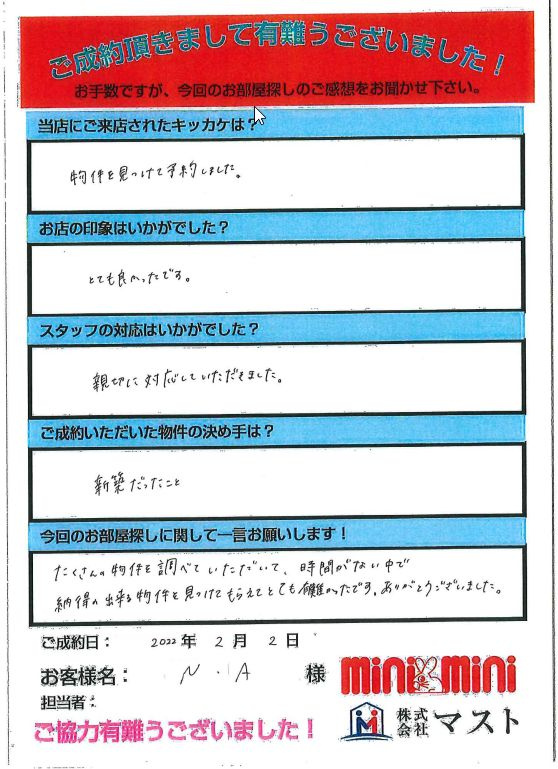 ご成約頂きまして有難うございました！
お手数ですが、今回のお部屋探しのご感想をお聞かせ下さい。
当店にご来店されたキッカケは？
物件を見つけて予約しました。
お店の印象はいかがでした？
とても良かったです。
スタッフの対応はいかがでした？
親切に対応していただきました。
ご成約いただいた物件の決め手は？
新築だったこと
今回のお部屋探しに関して一言お願いします！
たくさんの物件を調べていただいて、時間がない中で
納得の出来る物件を見つけてもらえてとても有難かったです。ありがとうございました。
ご成約日： 2022 年 2 月 2 日
お客様名： N . A 様
minimini
担当者：
株式会社 マスト
ご協力有難うございました！